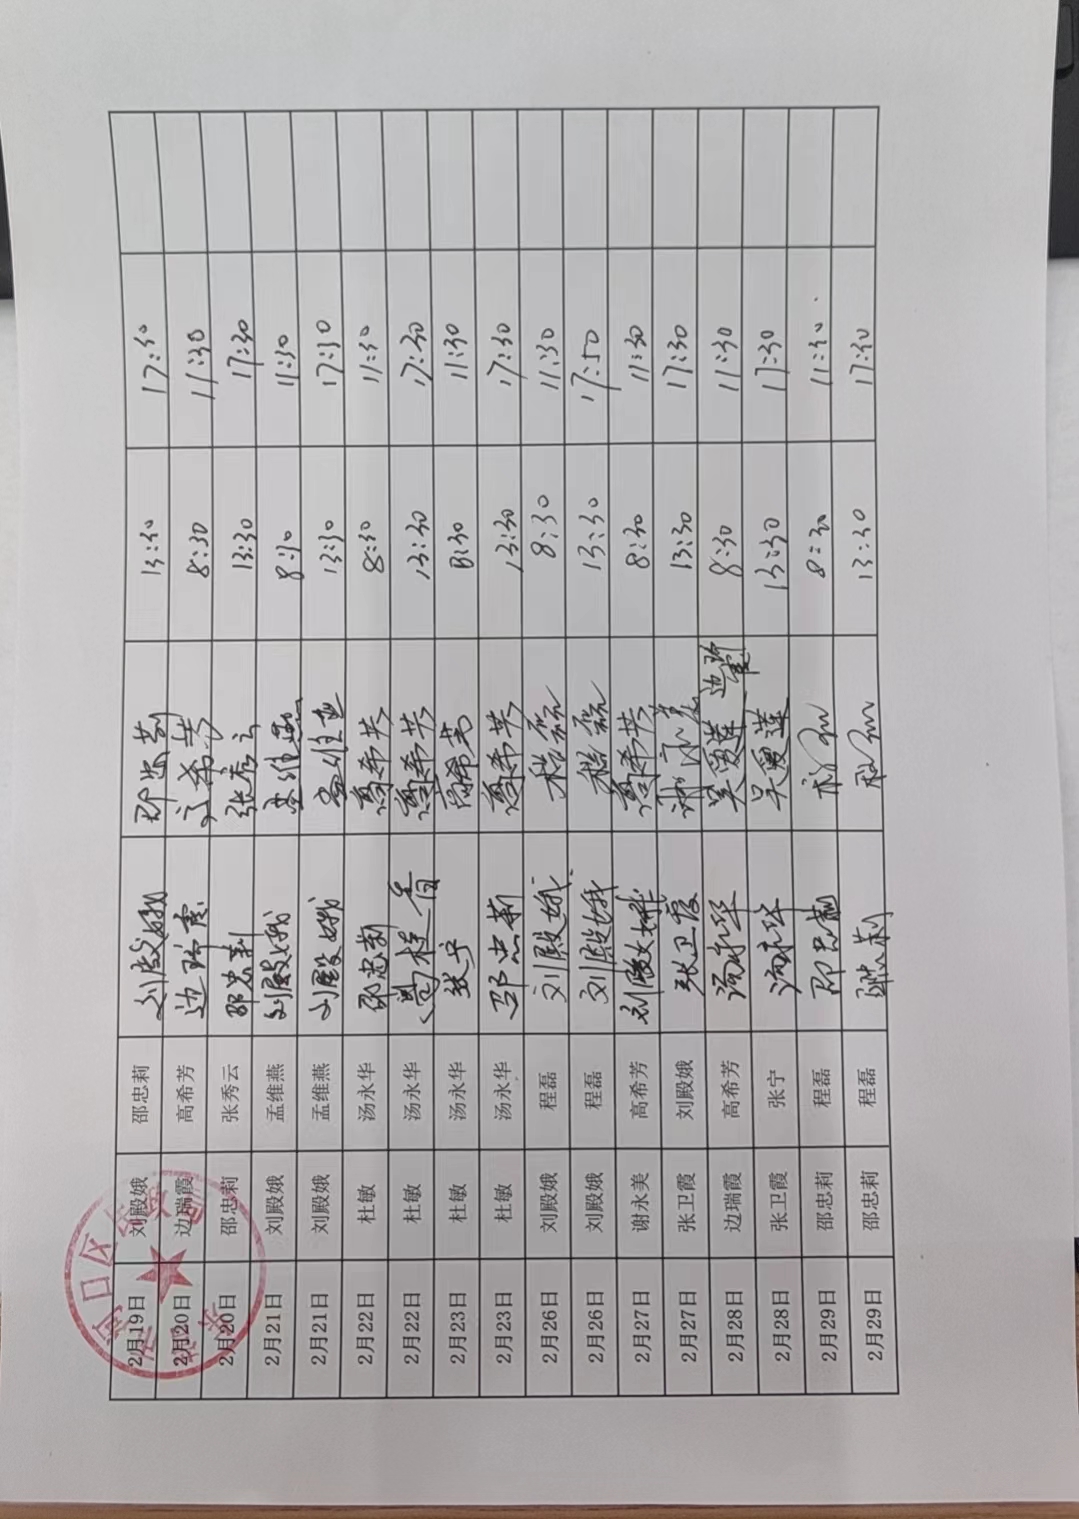 2月19日 刘殿娥 邵忠莉 刘殿娥 邵忠莉 13:30 17:30
2月20日 边瑞霞 高希芳 边瑞霞 高希芳 8:30 11:30
2月20日 邵忠莉 张秀云 邵忠莉 张秀云 13:30 17:30
2月21日 刘殿娥 孟维燕 刘殿娥 孟维燕 8:30 11:30
2月21日 刘殿娥 孟维燕 刘殿娥 孟维燕 13:30 17:30
2月22日 杜敏 汤永华 邵忠莉 高希芳 8:30 11:30
2月22日 杜敏 汤永华 高希芳 13:30 17:30
2月23日 杜敏 汤永华 张宁 高希芳 8:30 11:30
2月23日 杜敏 汤永华 邵忠莉 高希芳 13:30 17:30
2月26日 刘殿娥 程磊 刘殿娥 程磊 8:30 11:30
2月26日 刘殿娥 程磊 刘殿娥 程磊 13:30 17:50
2月27日 谢永美 高希芳 刘殿娥 高希芳 8:30 11:30
2月27日 张卫霞 刘殿娥 张卫霞 谢永美 13:30 17:30
2月28日 边瑞霞 高希芳 汤永华 吴爱莲 边瑞霞 8:30 11:30
2月28日 张卫霞 张宁 汤永华 吴爱莲 13:30 17:30
2月29日 邵忠莉 程磊 邵忠莉 8:30 11:30
2月29日 邵忠莉 程磊 邵忠莉 13:30 17:30
河口区